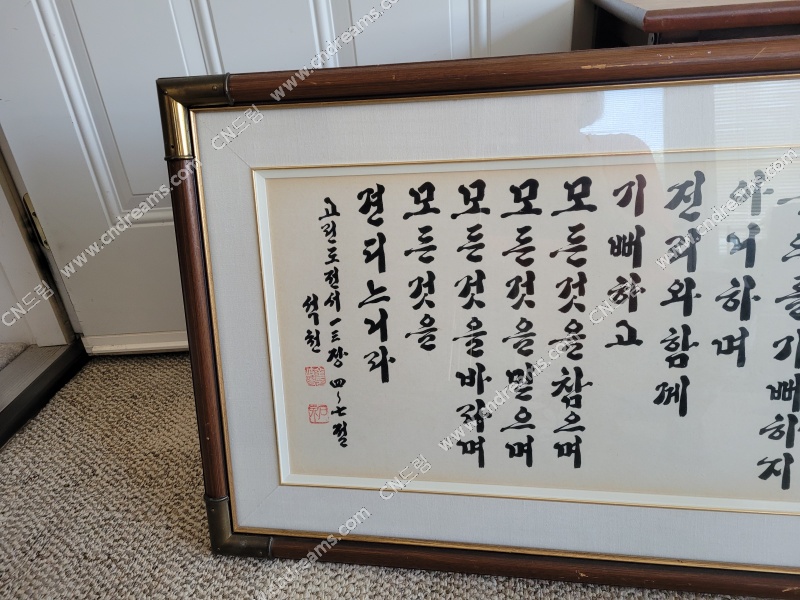 의를기뻐하지
아니하며
진리와함께
기뻐하고
모든것을참으며
모든것을믿으며
모든것을바라며
모든것을
견디느니라
고린도전서 一三장 四~七절
석천
CN드림
www.cndreams.com